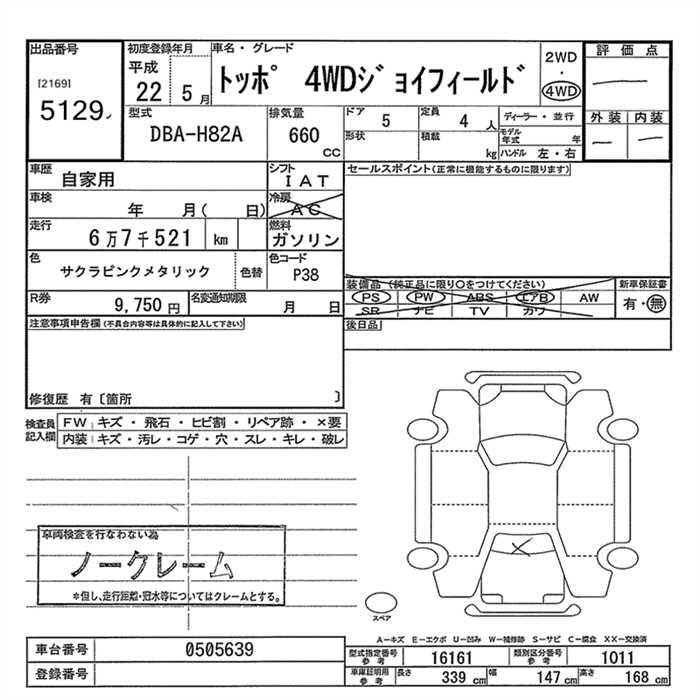 出品番号
[2169]
5129
初度登録年月
平成
22 5月
車名・グレード
トッポ 4WDジョイフィールド
2WD
・
4WD
評価点
外装 内装
型式
DBA-H82A
排気量
660
cc
ドア 5
形状
定員 4 人
積載 kg
ディーラー・並行
モデル年式 年
ハンドル 左・右
車歴 自家用
シフト
IAT
セールスポイント(正常に機能するものに限ります)
車検 年 月( 日)
冷房
AC
走行 6万7千521 km
燃料
ガソリン
色 サクラピンクメタリック 色替
色コード
P38
装備品(純正品に限り○をつけてください)
PS PW ABS エアB AW
SR ナビ TV カワ
新車保証書
有・無
R券 9,750円
名変通知期限
月 日
後日品
注意事項申告欄(不具合内容等は具体的に記入して下さい)
修復歴 有〔箇所 〕
検査員記入欄
FW キズ・飛石・ヒビ割・リペア跡・×要
内装 キズ・汚レ・コゲ・穴・スレ・キレ・破レ
車両検査を行なわない為
ノークレーム
*但し、走行距離・冠水等についてはクレームとする。
スペア
A―キズ E―エクボ U―凹み W―補修跡 S―サビ C―腐食 XX―交換済
車台番号 0505639
登録番号
型式指定番号参考 16161
類別区分番号参考 1011
車庫証明用参考 長さ 339 cm 幅 147 cm 高さ 168 cm